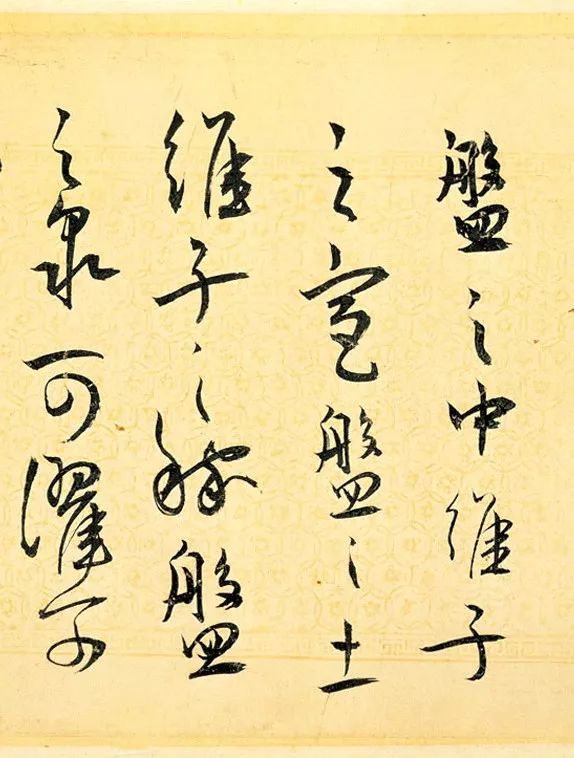 盤之中維子
之宮盤之土
維子之稼盤
之泉可濯可